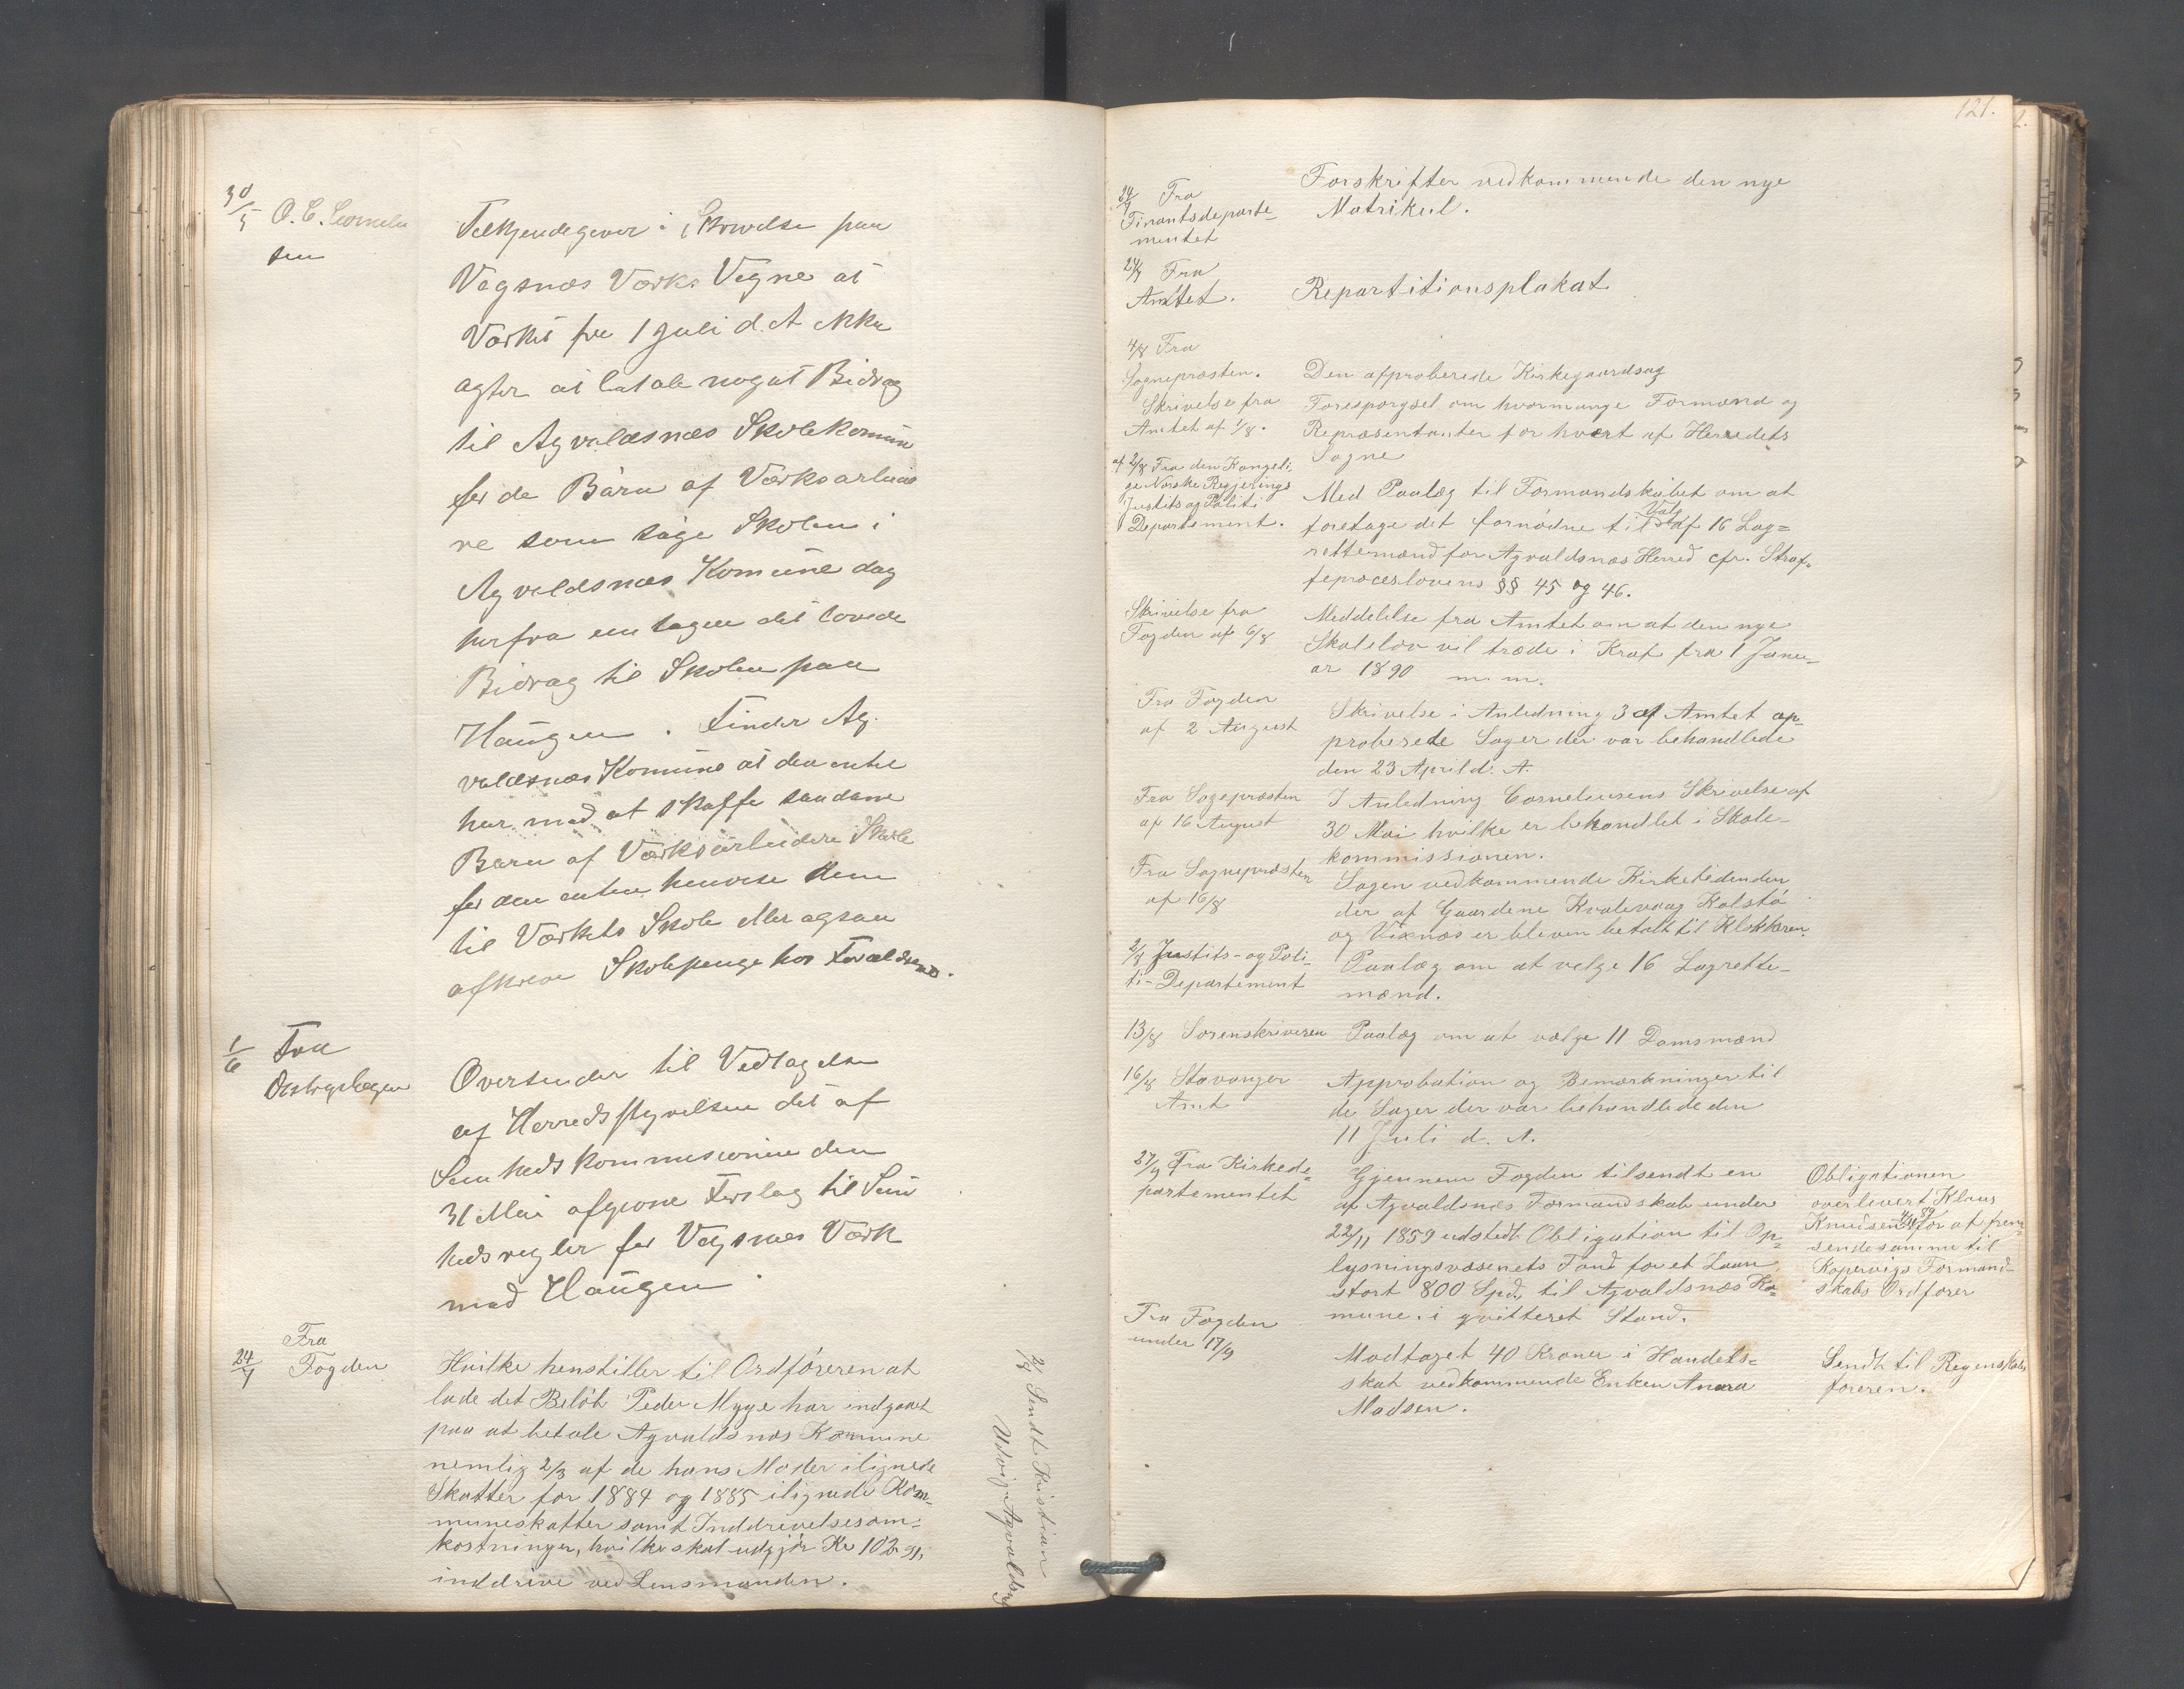 30/5 O. C. Cornelu
sen
Tilkjendegiver i Skrivelse paa
Vigsnæs Værks Vegne at
Værket fra 1 Juli d. A ikke
agter at betale noget Bidrag
til Agvaldsnæs Skolekomune
for de Børn af Værksarbeide
re som søge Skolen i
Agvaldsnæs Komune dog
herfra undtagen det lovede
Bidrag til Skolen paa
Haugen. Finder Ag
valdsnæs Komune at den intet
har med at skaffe saadanne
Børn af Værksarbeidere Skole
før den enten henvise dem
til Værkets Skole eller ogsaa
afkræve Skolepenge hos Forældrene.
1/6 Fra
Distrigtslægen
Oversender til Vedtagelse
af Herredsstyrelsen det af
Sundhedskommisionen den
31 Mai afgivne Forslag til Sund
hedsregler for Vigsnæs Værk
med Haugen.
24/7 Fra
Fogden
Hvilke henstiller til Ordføreren at
lade det Beløb Peder Myge har indgaaet
paa at betale Agvaldsnæs Kommune
nemlig 2/3 af de hans Moder ilignede
Skatter for 1884 og 1885 ilignede Kom-
muneskatter samt Inddrivelsesom-
kostninger, hvilke skal udgjør Kr 102.91,
inddrive ved Lensmanden.
2/8 Sendt Kristian
Utvig Agvaldsn
121.
24/7 Fra
Finantsdeparte-
mentet
Forskrifter vedkommende den nye
Matrikul.
24/7 Fra
Amtet.
Repartitionsplakat
4/8 Fra
Sognepræsten.
Den afproberede Kirkegaardsag
Skrivelse fra
Amtet af 1/8.
Forespørgsel om hvormange Formænd og
Repræsentanter for hvært af Herredets
Sogne
af 2/8 Fra den Kongeli-
ge Norske Regjerings
Justits og Politi
Departement.
Med Paalæg til Formandskabet om at
foretage det fornødne til Valg af 16 Lag=
rettemænd for Agvaldsnæs Herred cfr. Straf-
feproceslovens §§ 45 og 46.
Skrivelse fra
Fogden af 6/8
Meddelelse fra Amtet om at den nye
Skolelov vil træde i Kraf fra 1 Janu-
ar 1890 m. m.
Fra Fogden
af 2 August
Skrivelse i Anledning 3 af Amtet ap-
proberede Sager der var behandlede
den 23 April d. A.
Fra Sogepræsten
af 16 August
I Anledning Corneliusens Skrivelse af
30 Mai hvilke er behandlet i Skole-
kommissionen.
Fra Sognepræsten
af 16/8
Sagen vedkommende Kirketidenden
der af Gaardene Kvalevaag Kolstø
og Vixnæs er bleven betalt til Klokkeren.
2/8 Justits- og Poli-
ti-Departement
Paalæg om at velge 16 Lagrette-
mænd.
13/8 Sorenskriveren
Paalæg om at vælge 11 Domsmænd
16/8 Stavanger
Amt
Approbation og Bemærkninger til
de Sager der var behandlede den
11 Juli d. A.
27/9 Fra Kirkede-
partementet
Gjennem Fogden tilsendt en
af Agvaldsnæs Formandskab under
22/11 1859 udstedt Obligation til Op-
lysningsvæsenets Fond for et Laan
stort 800 Spd, til Agvaldsnæs Ko-
mune. i qvitteret Stand.
Obligationen
overlevert Klaus
Knudsen 4/11 89 for at frem-
sende samme til
Kopervigs Formand-
skabs Ordfører
Fra Fogden
under 17/9
Modtaget 40 Kroner i Handels=
skat vedkommende Enken Anna
Madsen.
Sendt til Regenskabs
føreren.